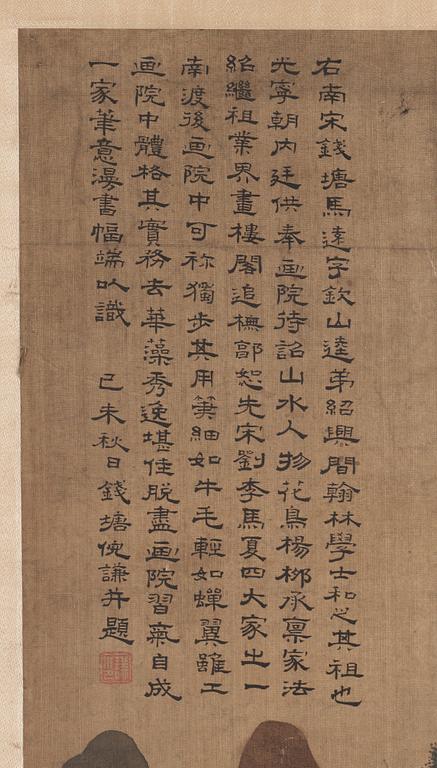 右南宋錢塘馬遠字欽山逵弟紹興間翰林學士和之其祖也
光寧朝內廷供奉画院待詔山水人物花鳥楊柳承稟家法
紹繼祖業界畫樓閣追橅郭恕先宋劉李馬夏四大家㞢一
南渡後画院中可稱獨步其用筆細如牛毛輕如蟬翼雖工
画院中體格其實務去華藻秀逸堪佳脫盡画院習氣自成
一家筆意漫書幅端以識 己未秋日錢塘倪謙并題